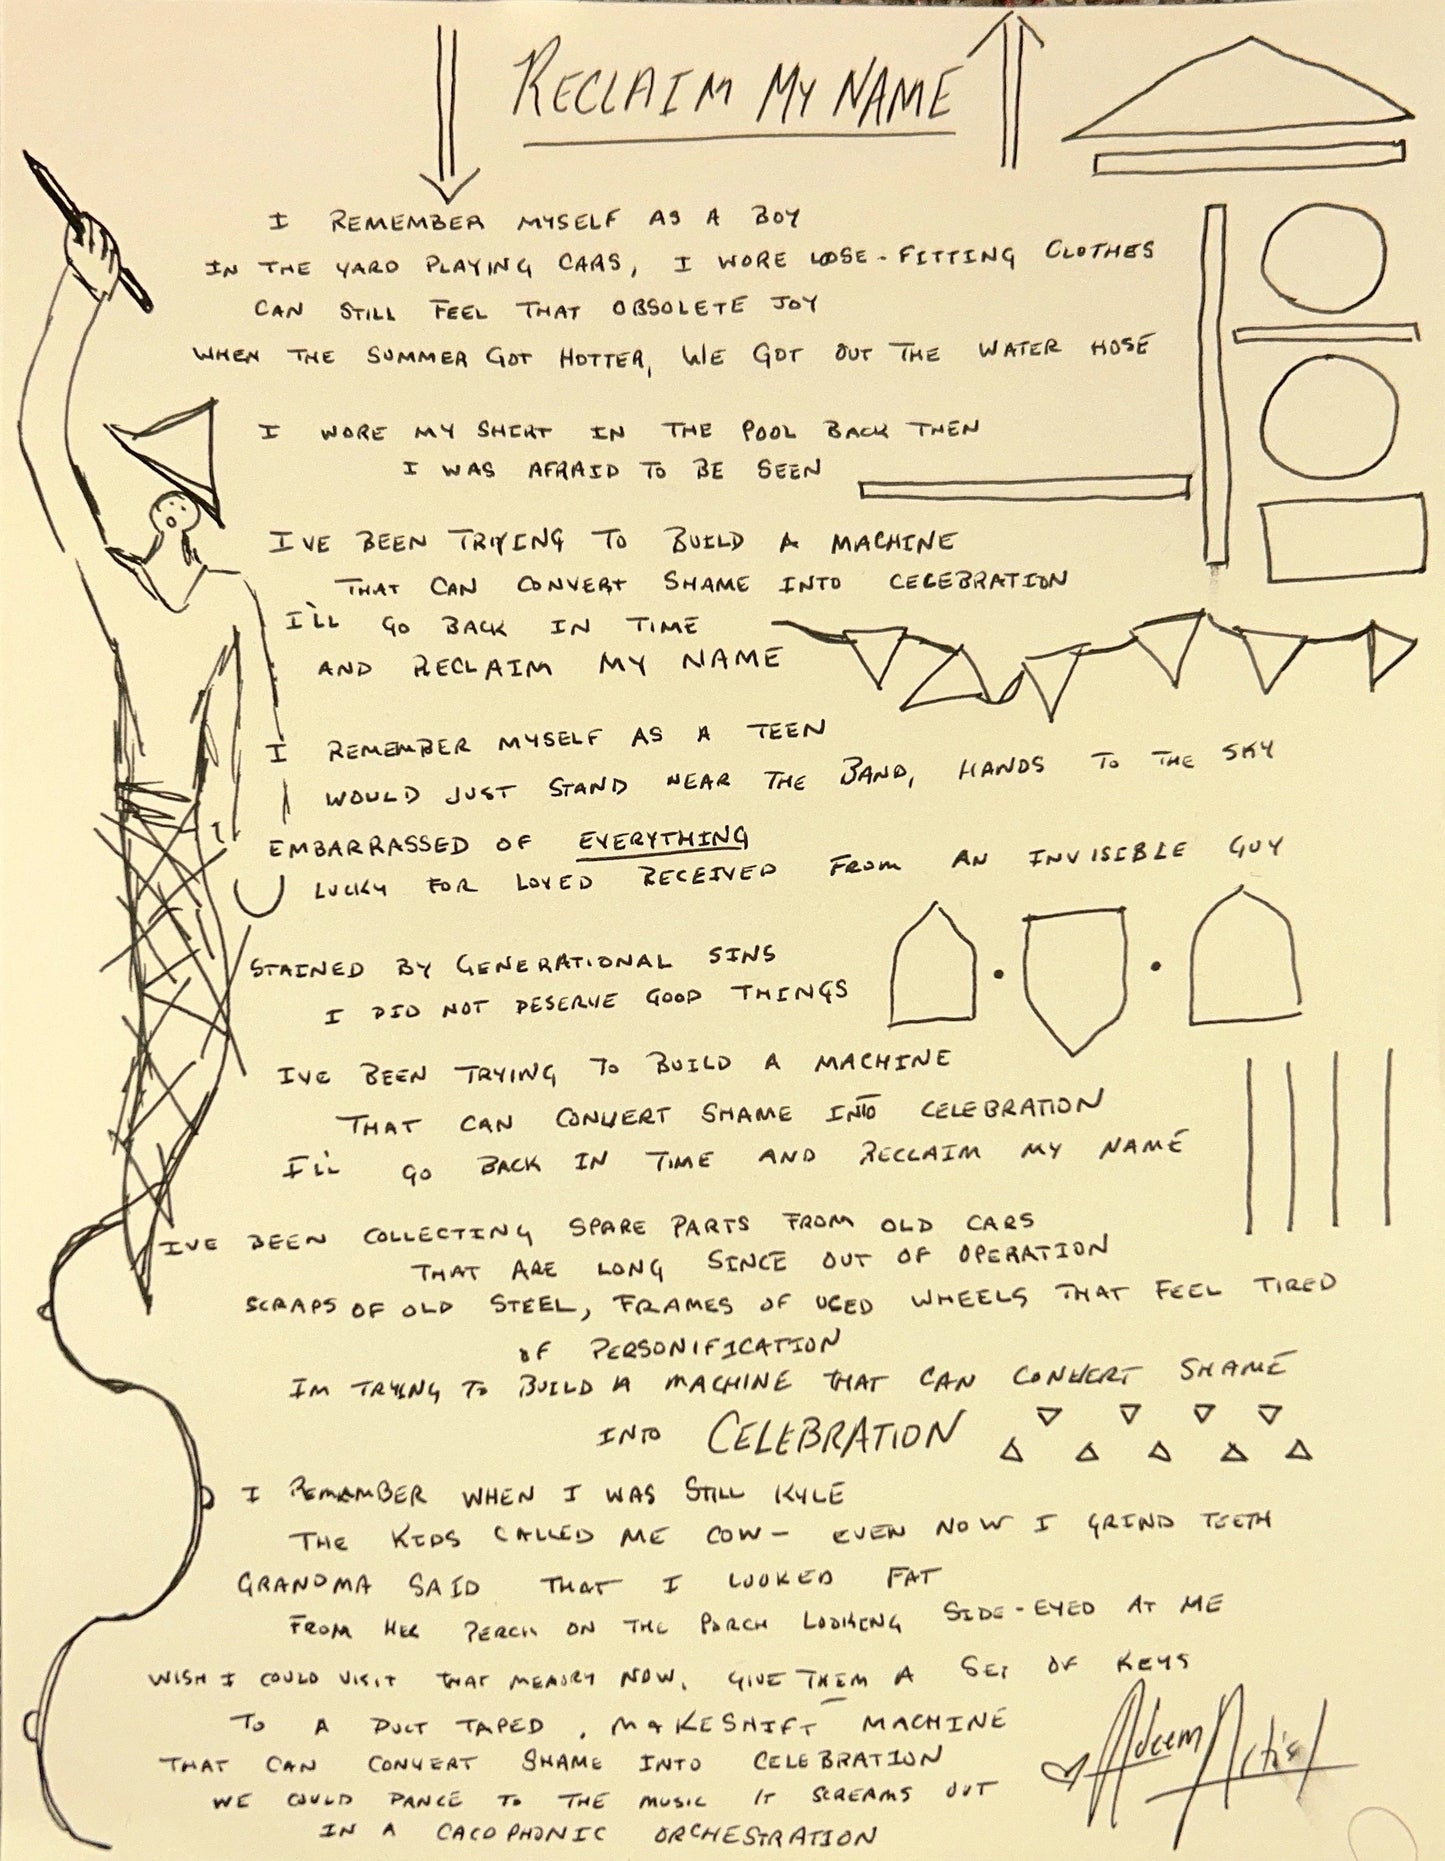 RECLAIM MY NAME
I REMEMBER MYSELF AS A BOY
IN THE YARD PLAYING CARS, I WORE LOSE-FITTING CLOTHES
CAN STILL FEEL THAT OBSOLETE JOY
WHEN THE SUMMER GOT HOTTER, WE GOT OUT THE WATER HOSE
I WORE MY SHIRT IN THE POOL BACK THEN
I WAS AFRAID TO BE SEEN
I'VE BEEN TRYING TO BUILD A MACHINE
THAT CAN CONVERT SHAME INTO CELEBRATION
I'LL GO BACK IN TIME
AND RECLAIM MY NAME
I REMEMBER MYSELF AS A TEEN
I WOULD JUST STAND NEAR THE BAND, HANDS TO THE SKY
EMBARRASSED OF EVERYTHING
LUCKY FOR LOVED RECEIVED FROM AN INVISIBLE GUY
STAINED BY GENERATIONAL SINS
I DID NOT DESERVE GOOD THINGS
IVE BEEN TRYING TO BUILD A MACHINE
THAT CAN CONVERT SHAME INTO CELEBRATION
I'LL GO BACK IN TIME AND RECLAIM MY NAME
IVE BEEN COLLECTING SPARE PARTS FROM OLD CARS
THAT ARE LONG SINCE OUT OF OPERATION
SCRAPS OF OLD STEEL, FRAMES OF USED WHEELS THAT FEEL TIRED
OF PERSONIFICATION
IM TRYING TO BUILD A MACHINE THAT CAN CONVERT SHAME
INTO CELEBRATION
I REMEMBER WHEN I WAS STILL KYLE
THE KIDS CALLED ME COW- EVEN NOW I GRIND TEETH
GRANDMA SAID THAT I LOOKED FAT
FROM HER PERCH ON THE PORCH LOOKING SIDE-EYED AT ME
WISH I COULD VISIT THAT MEMORY NOW, GIVE THEM A SET OF KEYS
TO A DUCT TAPED, MAKESHIFT MACHINE
THAT CAN CONVERT SHAME INTO CELEBRATION
WE COULD DANCE TO THE MUSIC IT SCREAMS OUT
IN A CACOPHONIC ORCHESTRATION
Adeem Artist